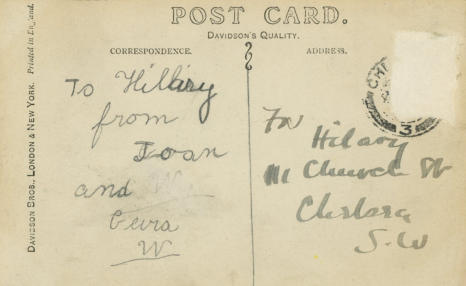 POST CARD.
DAVIDSON'S QUALITY.
CORRESPONDENCE.
ADDRESS.
DAVIDSON BROS., LONDON & NEW YORK. Printed in England.
To Hillary
from
Joan
and
W
For
Hilary
111 Church St
Chelsea
S.W
3